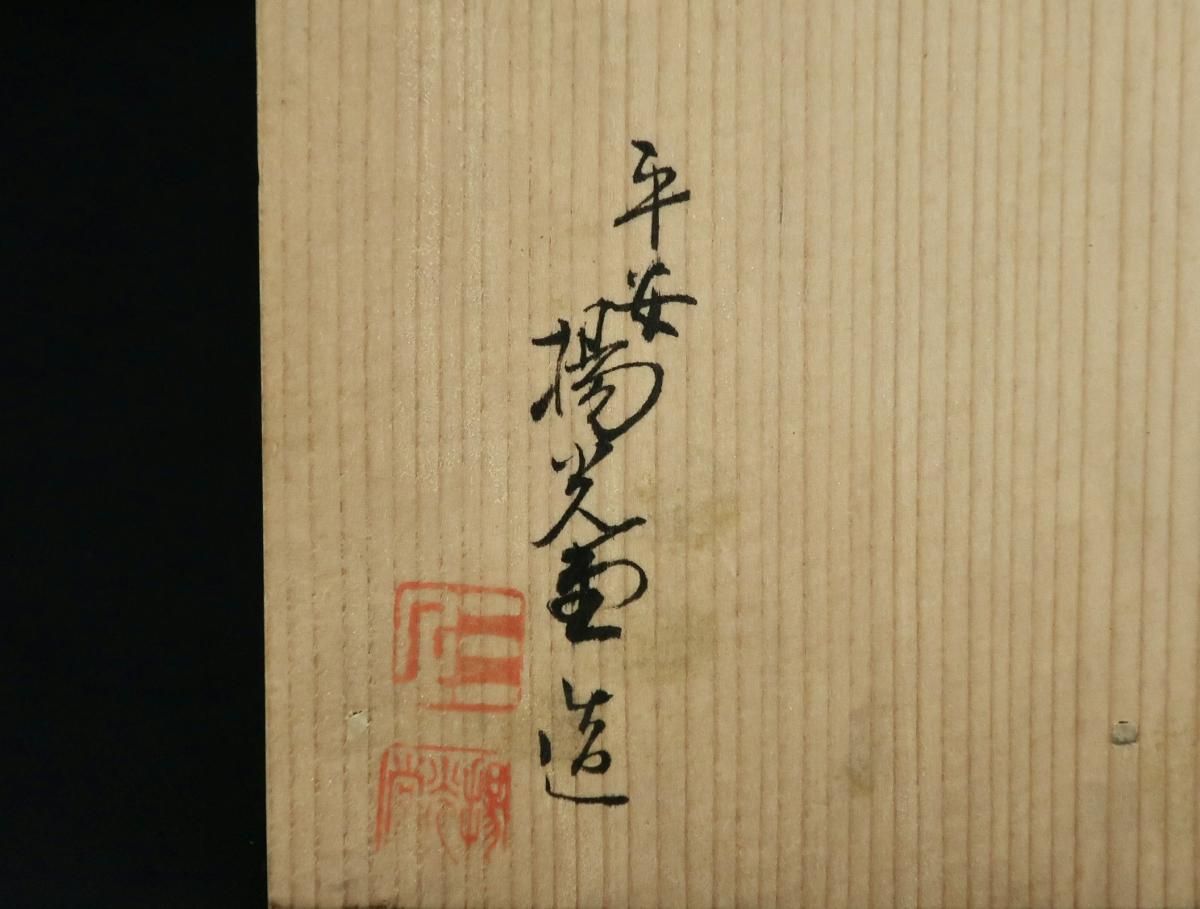 平安
揚光堂
造